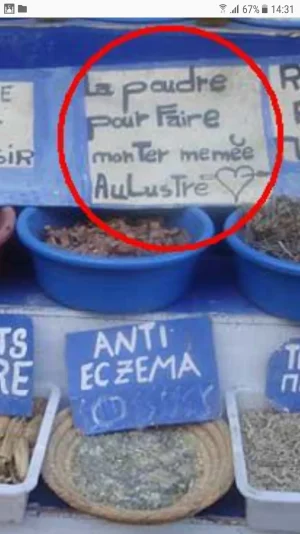 67% 14:31
E
SIR
La poudre
pour Faire
monTer memée
AuLusTre
R
TS
RE
ANTI
ECZEMA